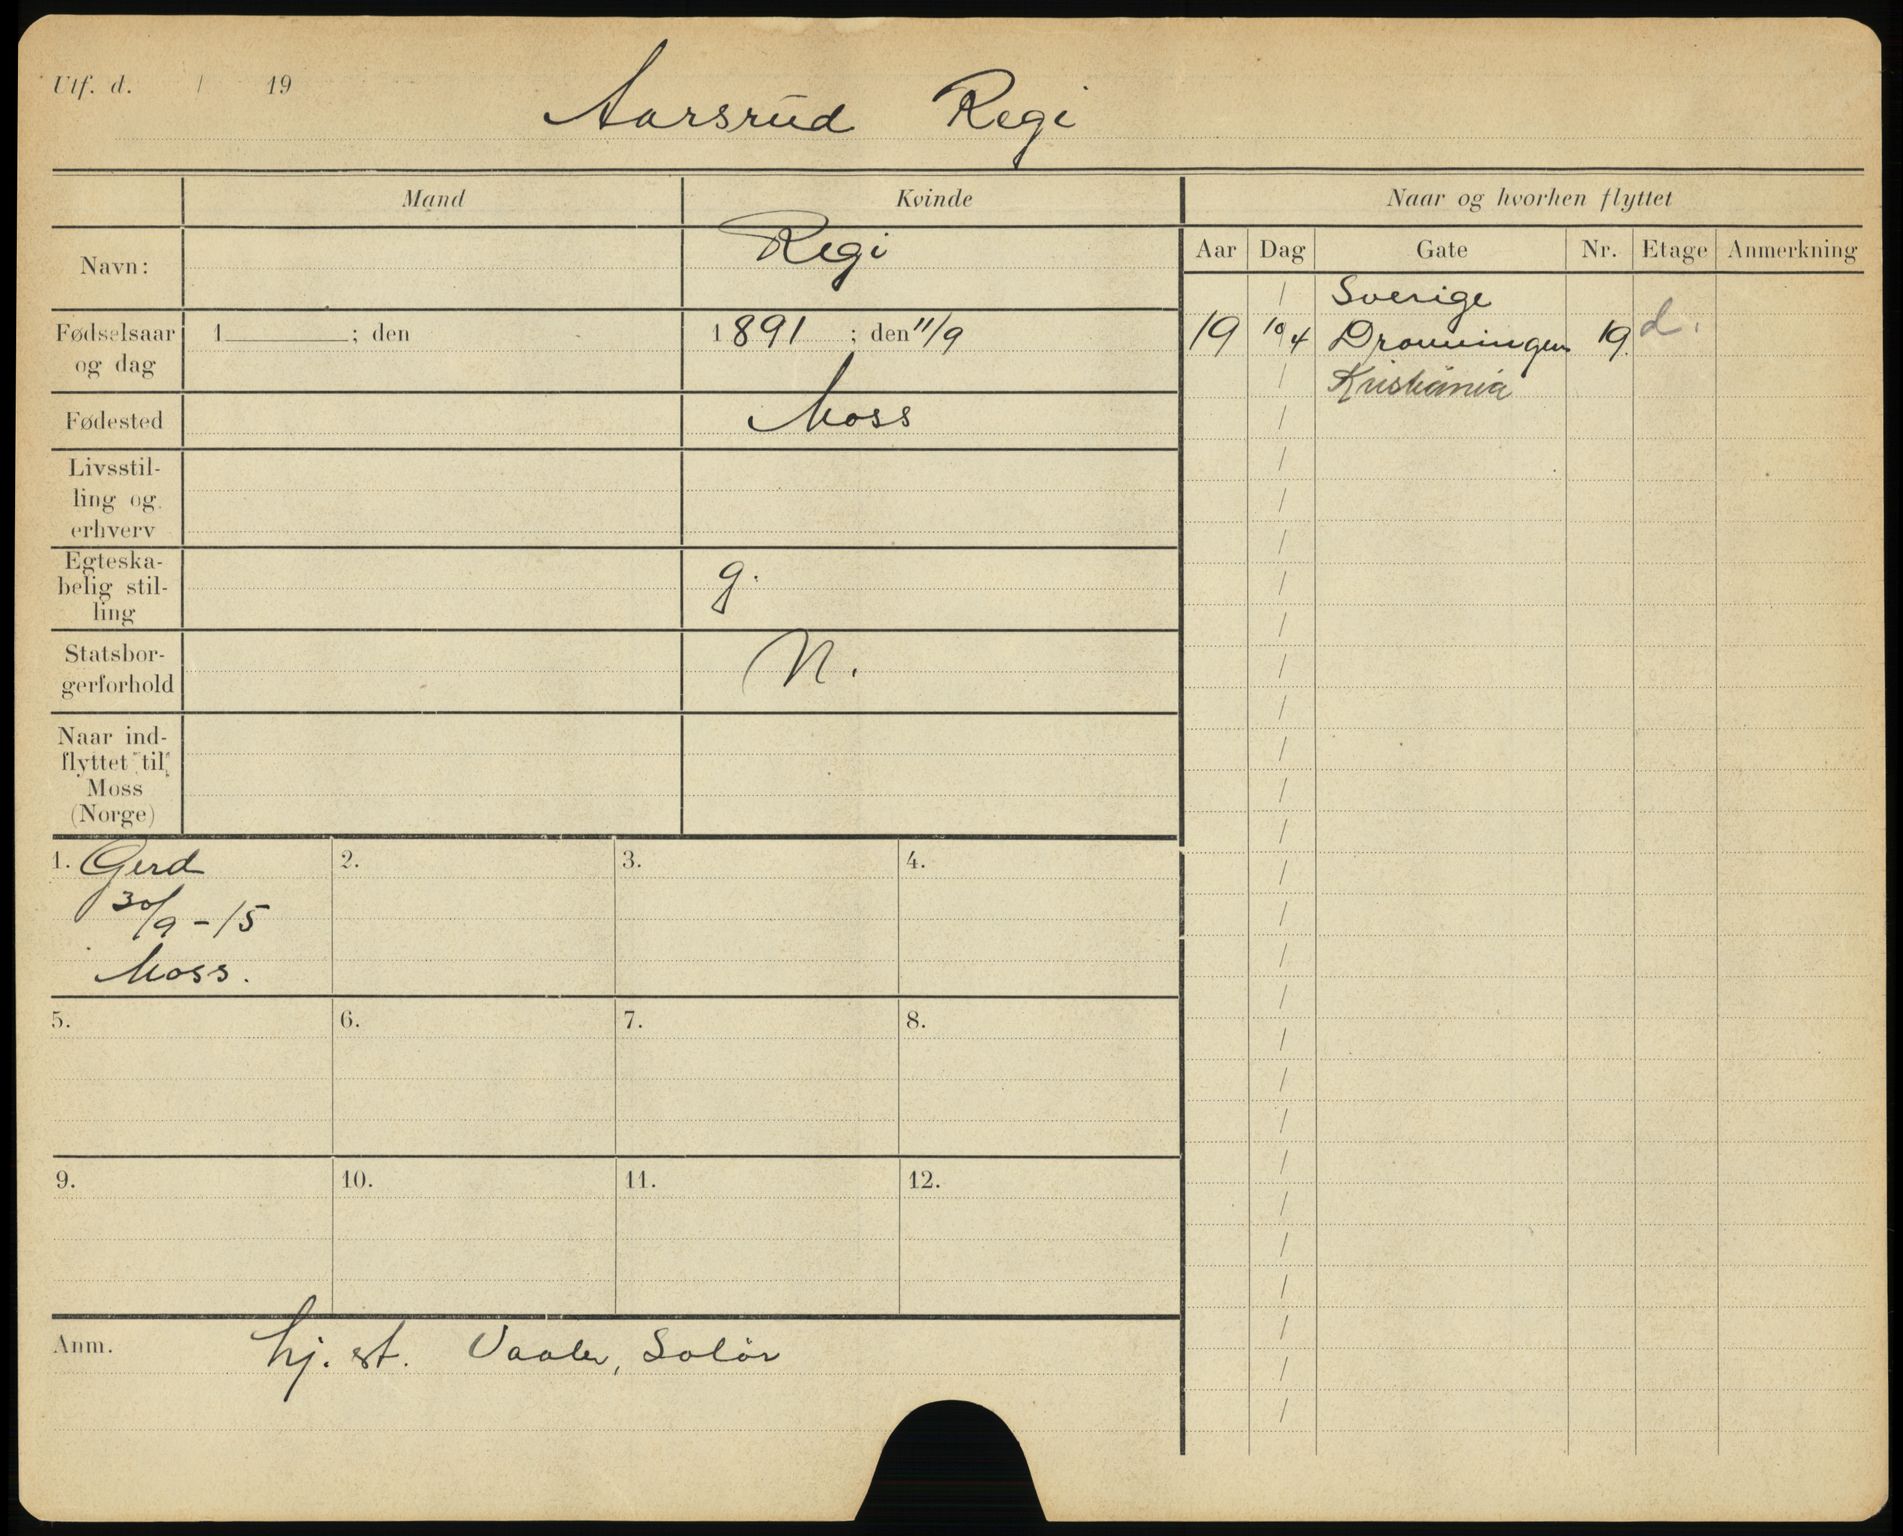 Utf. d. / 19
Aarsrud Regi
Mand
Kvinde
Naar og hvorhen flyttet
Navn:
Regi
Aar Dag Gate Nr. Etage Anmerkning
/ Sverige
19 10/4 Dronningen 19. d.
/ Kristiania
Fødselsaar
og dag
1 ; den
1891 ; den 11/9
Fødested
Moss
Livsstil-
ling og
erhverv
Egteska-
belig stil-
ling
g.
Statsbor-
gerforhold
N.
Naar ind-
flyttet til
Moss
(Norge)
1. Gerd
30/9 - 15
Moss.
2.
3.
4.
5.
6.
7.
8.
9.
10.
11.
12.
Anm.
hj. st. Vaaler, Solør